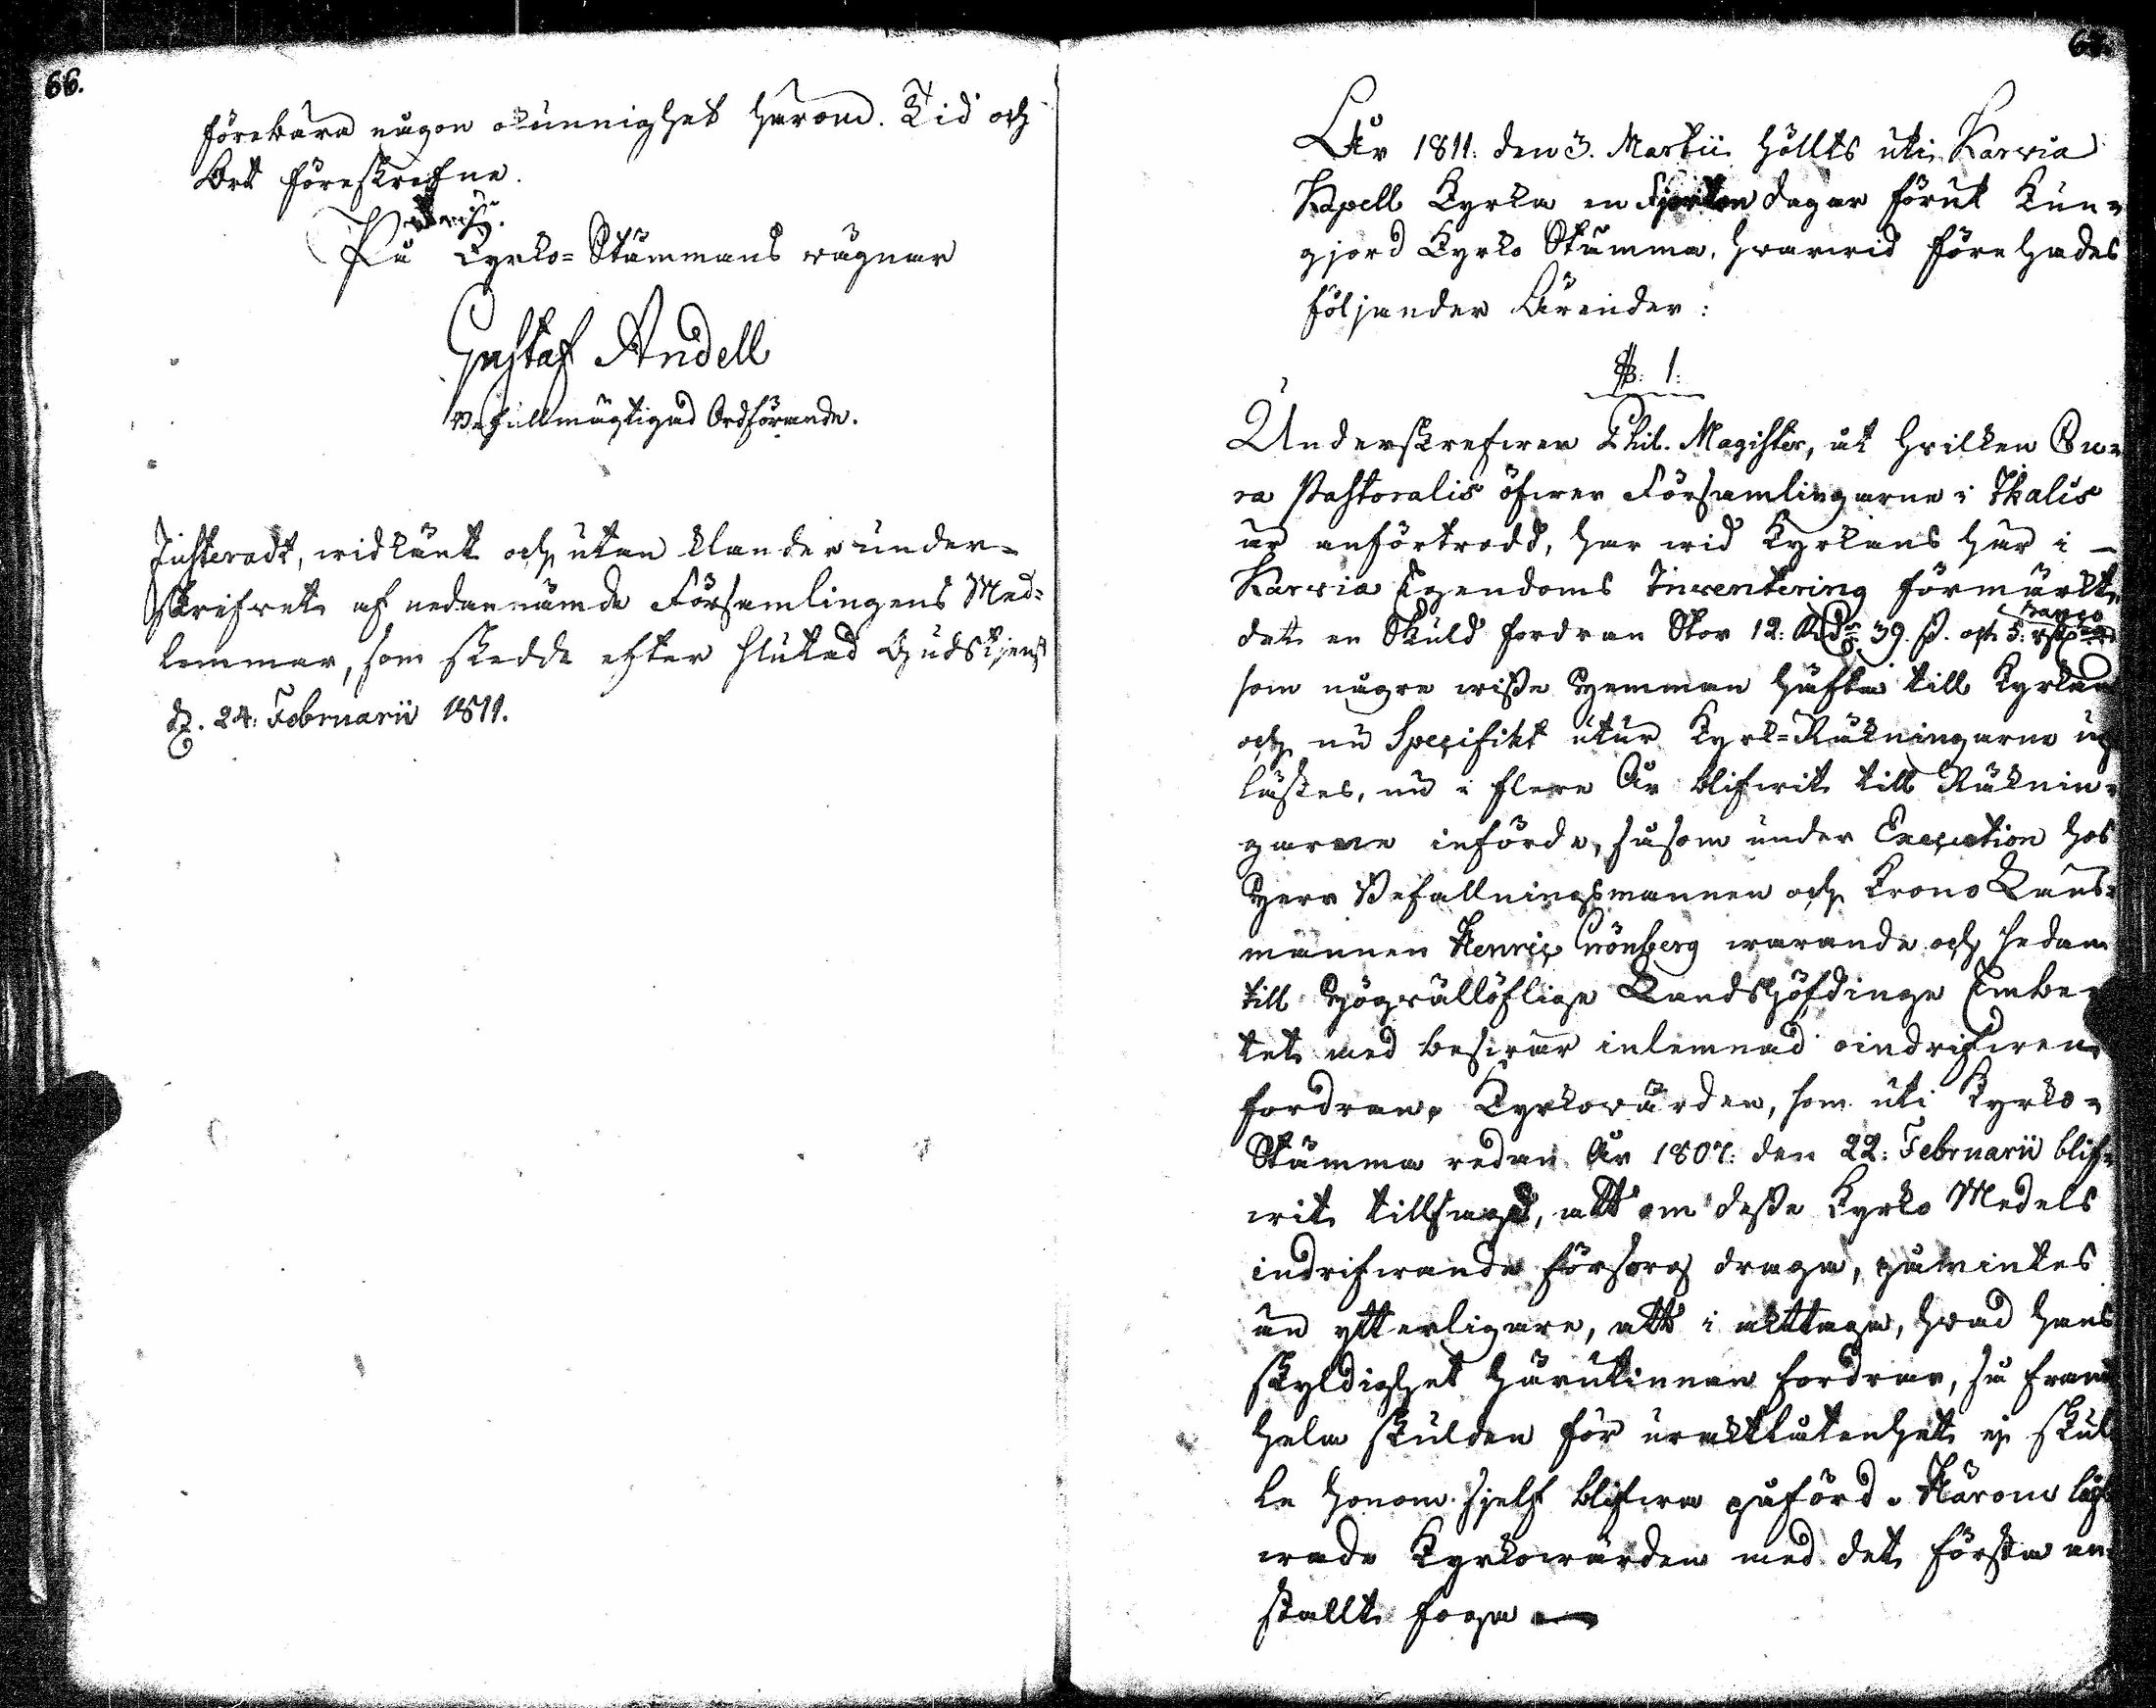 66.
förebära någon okunnighet härom. Tid och
Ort föreskrefne.
På Kyrko=Stämmans wägnar
Gustaf Andell
Befullmägtigad Ordförande.
Justeradt, widkänt och utan klander under=
skrifwet af nedannämde Församlingens Med=
lemmar, som skedde efter slutad Gudstjenst
d. 24: Februarii 1811.
67.
År 1811: den 3. Martii höllts uti Karvia
Kapell Kyrka en Fjorton dagar förut kun=
gjord Kyrko Stämma, hwarwid förehades
följander Ärender:
§: 1:
Underskrefwen Phil. Magister, åt hwilken Cu=
ra Pastoralis öfwer Församlingarne i Ikalis
är anförtrodd, har wid Kyrkans här i
Karvia Egendoms Inventering förmärkt,
det en Skuld fordran Stor 12: Rd 39. ß. och 5: rst Banco
som någre wiße Hemman häfta till Kyrkan
och nu Specifikt utur Kyrk=Räkningarne up
lästes, nu i flere År blifwit till Räknin=
garne införde, såsom under Execution hos
Herr Befallningsmannen och Krono Läns=
mannen Henric Grönberg warande och sedan
till Högwällöflige Landshöfdinge Embe=
tet med beswär inlemnad oindrifwen
fordran. Kyrkowärden, som uti Kyrko=
Stämma redan År 1807: den 22: Februarii blif=
wit tillsagd, att om deße Kyrko Medels
indrifwande försorg draga, påmintes
än ytterligare, att i akttaga, hwad hans
skyldighet härutinnan fordrar, så framt
hela skulden för uraktlåtenhet ej skul
le honom sjelf blifwa påförd. Härom låf
wade Kyrkowärden med det första an=
stallt foga